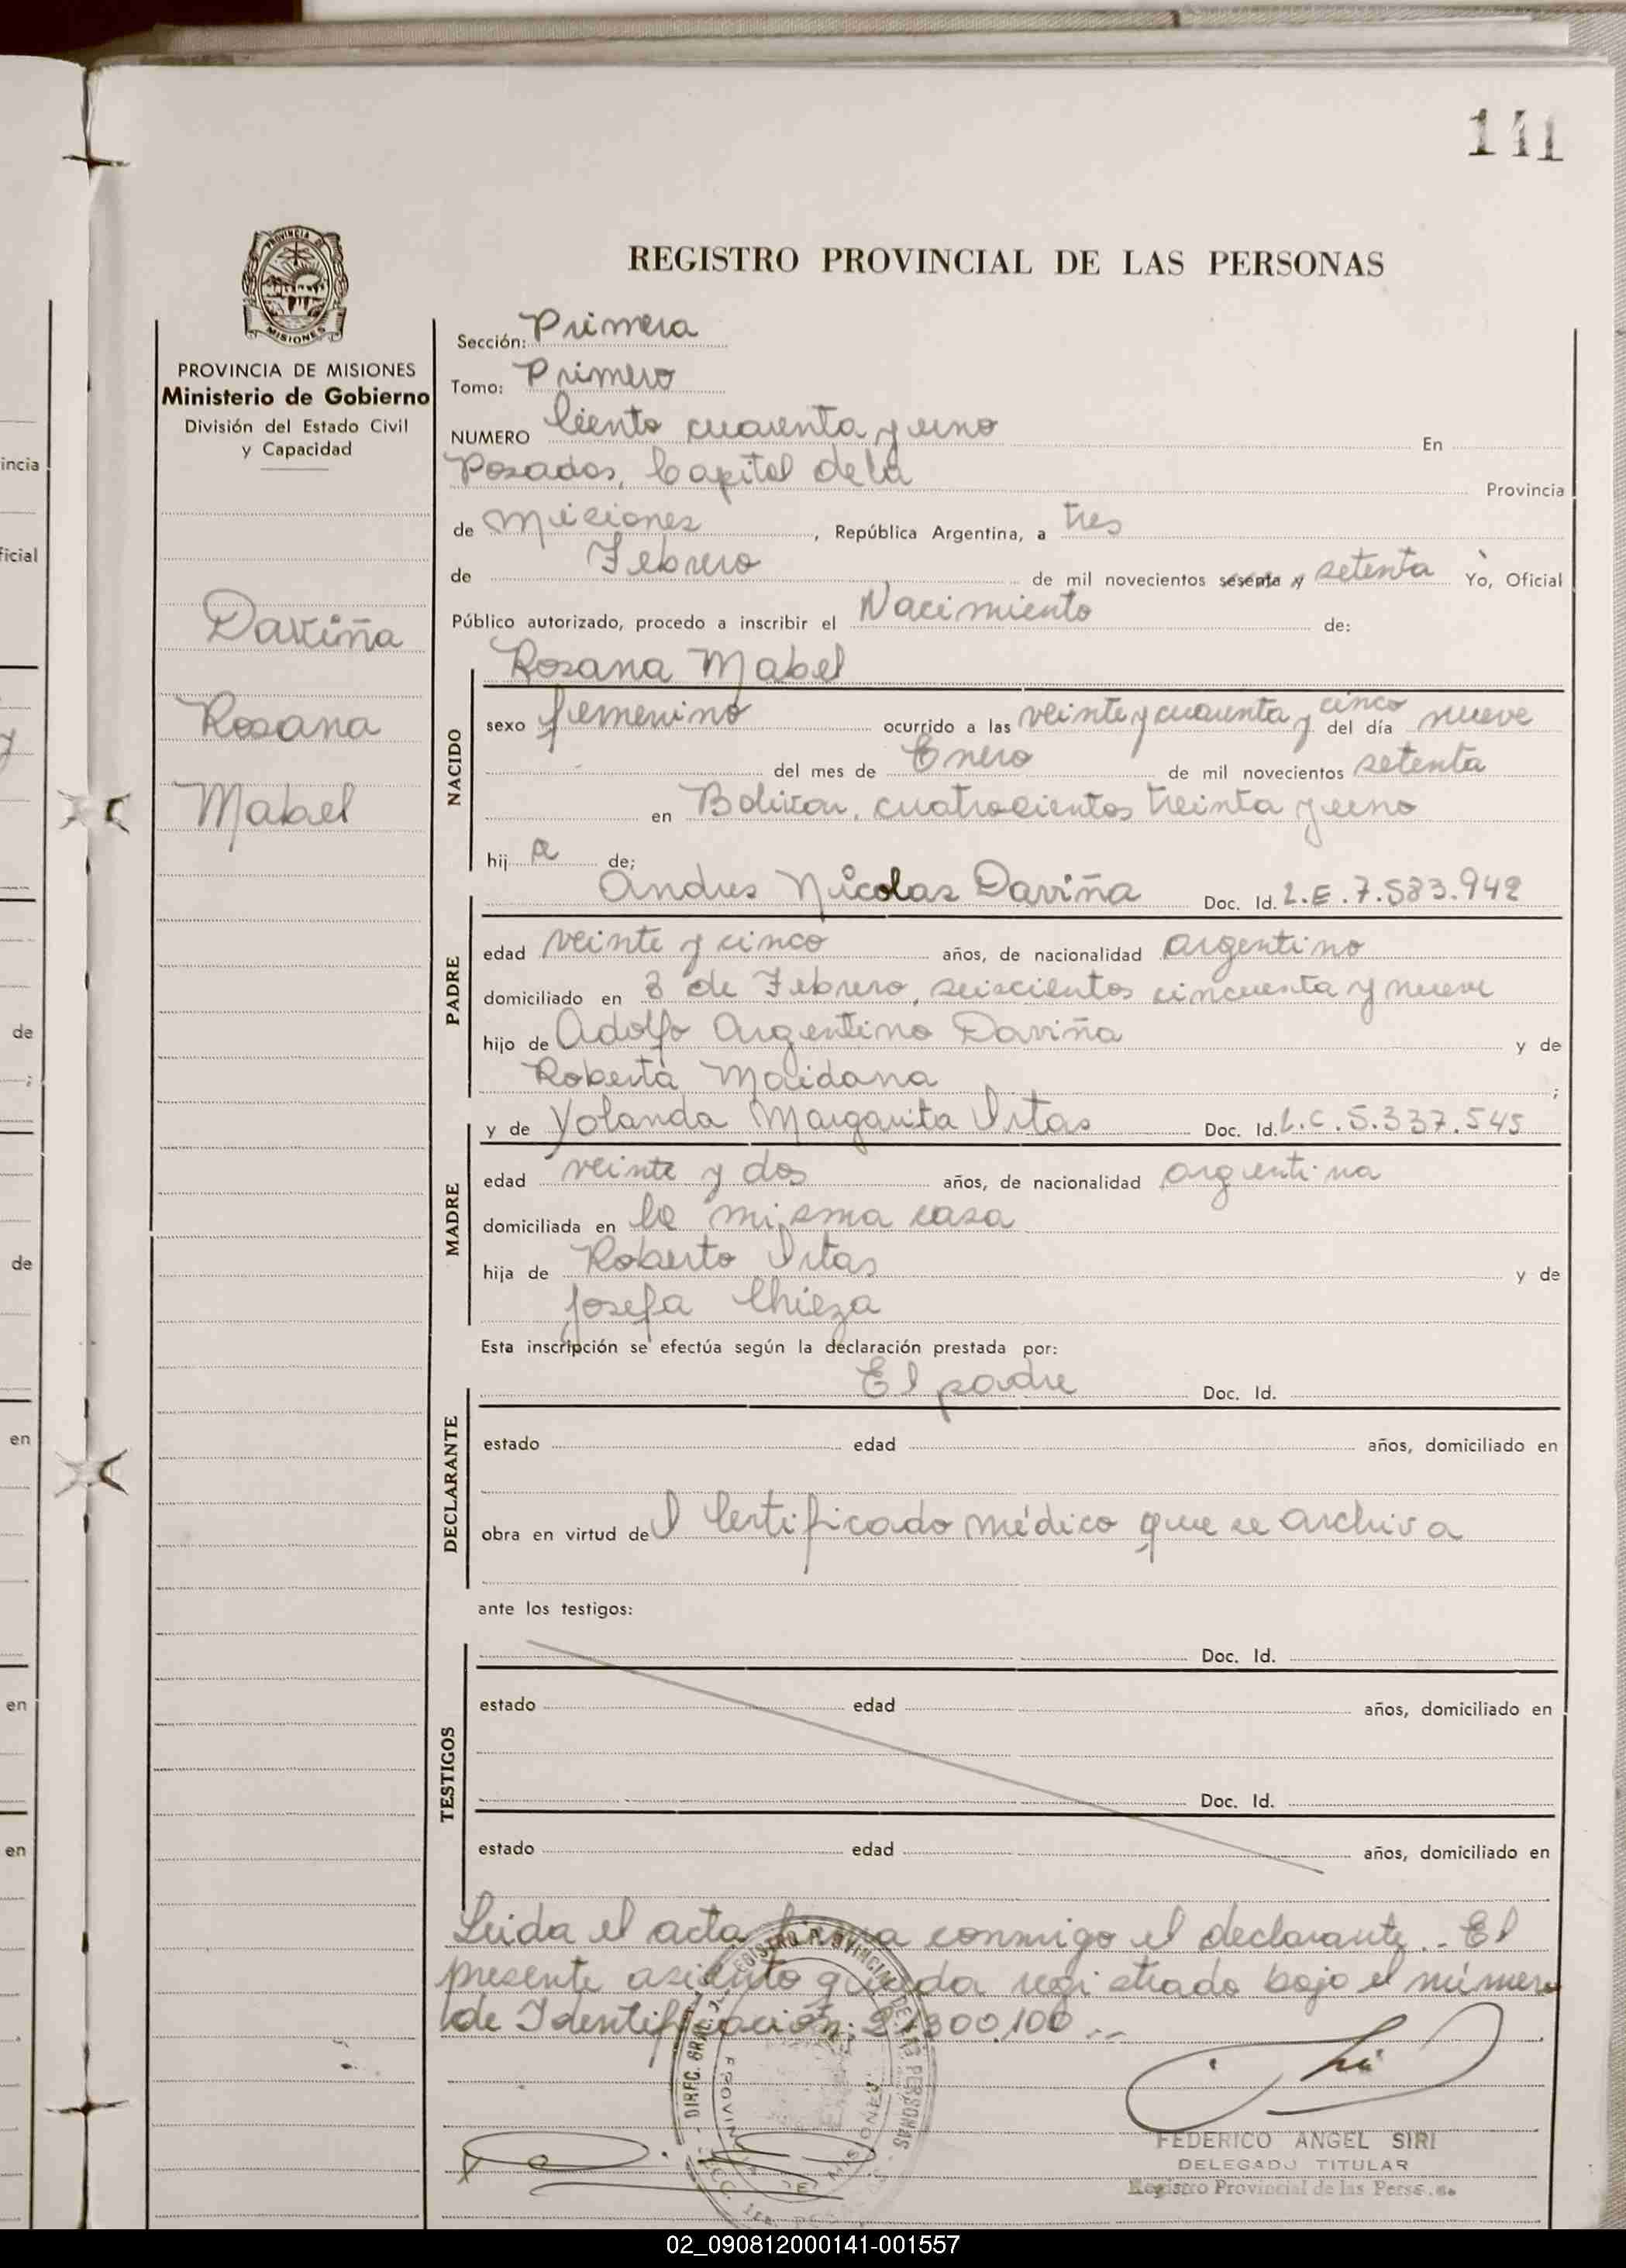 141
PROVINCIA DE
MISIONES
PROVINCIA DE MISIONES
Ministerio de Gobierno
División del Estado Civil
y Capacidad
Daviña
Rosana
Mabel
REGISTRO PROVINCIAL DE LAS PERSONAS
Sección: Primera
Tomo: Primero
NUMERO Ciento cuarenta y uno En
Posadas, Capital de la Provincia
de Misiones, República Argentina, a tres
de Febrero de mil novecientos sesenta y setenta Yo, Oficial
Público autorizado, procedo a inscribir el Nacimiento de:
Rosana Mabel
NACIDO
sexo femenino ocurrido a las veinte y cuarenta y cinco del día nueve
del mes de Enero de mil novecientos setenta
en Bolivar, cuatrocientos treinta y uno
hija de;
Andres Nicolas Daviña Doc. Id. L.E.7.583.942
PADRE
edad veinte y cinco años, de nacionalidad argentino
domiciliado en 3 de Febrero, seiscientos cincuenta y nueve
hijo de Adolfo Argentino Daviña y de
Roberta Maidana ;
y de Yolanda Margarita Doc. Id. L.C.5.337.545
MADRE
edad veinte y dos años, de nacionalidad argentina
domiciliada en la misma casa
hija de Roberto y de
Josefa Chieza
Esta inscripción se efectúa según la declaración prestada por:
El padre Doc. Id.
DECLARANTE
estado edad años, domiciliado en
obra en virtud del Certificado médico que se archiva
ante los testigos:
TESTIGOS
Doc. Id.
estado edad años, domiciliado en
Doc. Id.
estado edad años, domiciliado en
Leida el acta firma conmigo el declarante.- El
presente asiento queda registrado bajo el número
de Identificación: 21.300.100.--
REGISTRO PROVINCIAL DE LAS PERSONAS
MISIONES
FEDERICO ANGEL SIRI
DELEGADO TITULAR
Registro Provincial de las Personas
incia
ficial
y
de
;
de
en
en
en
02_090812000141-001557